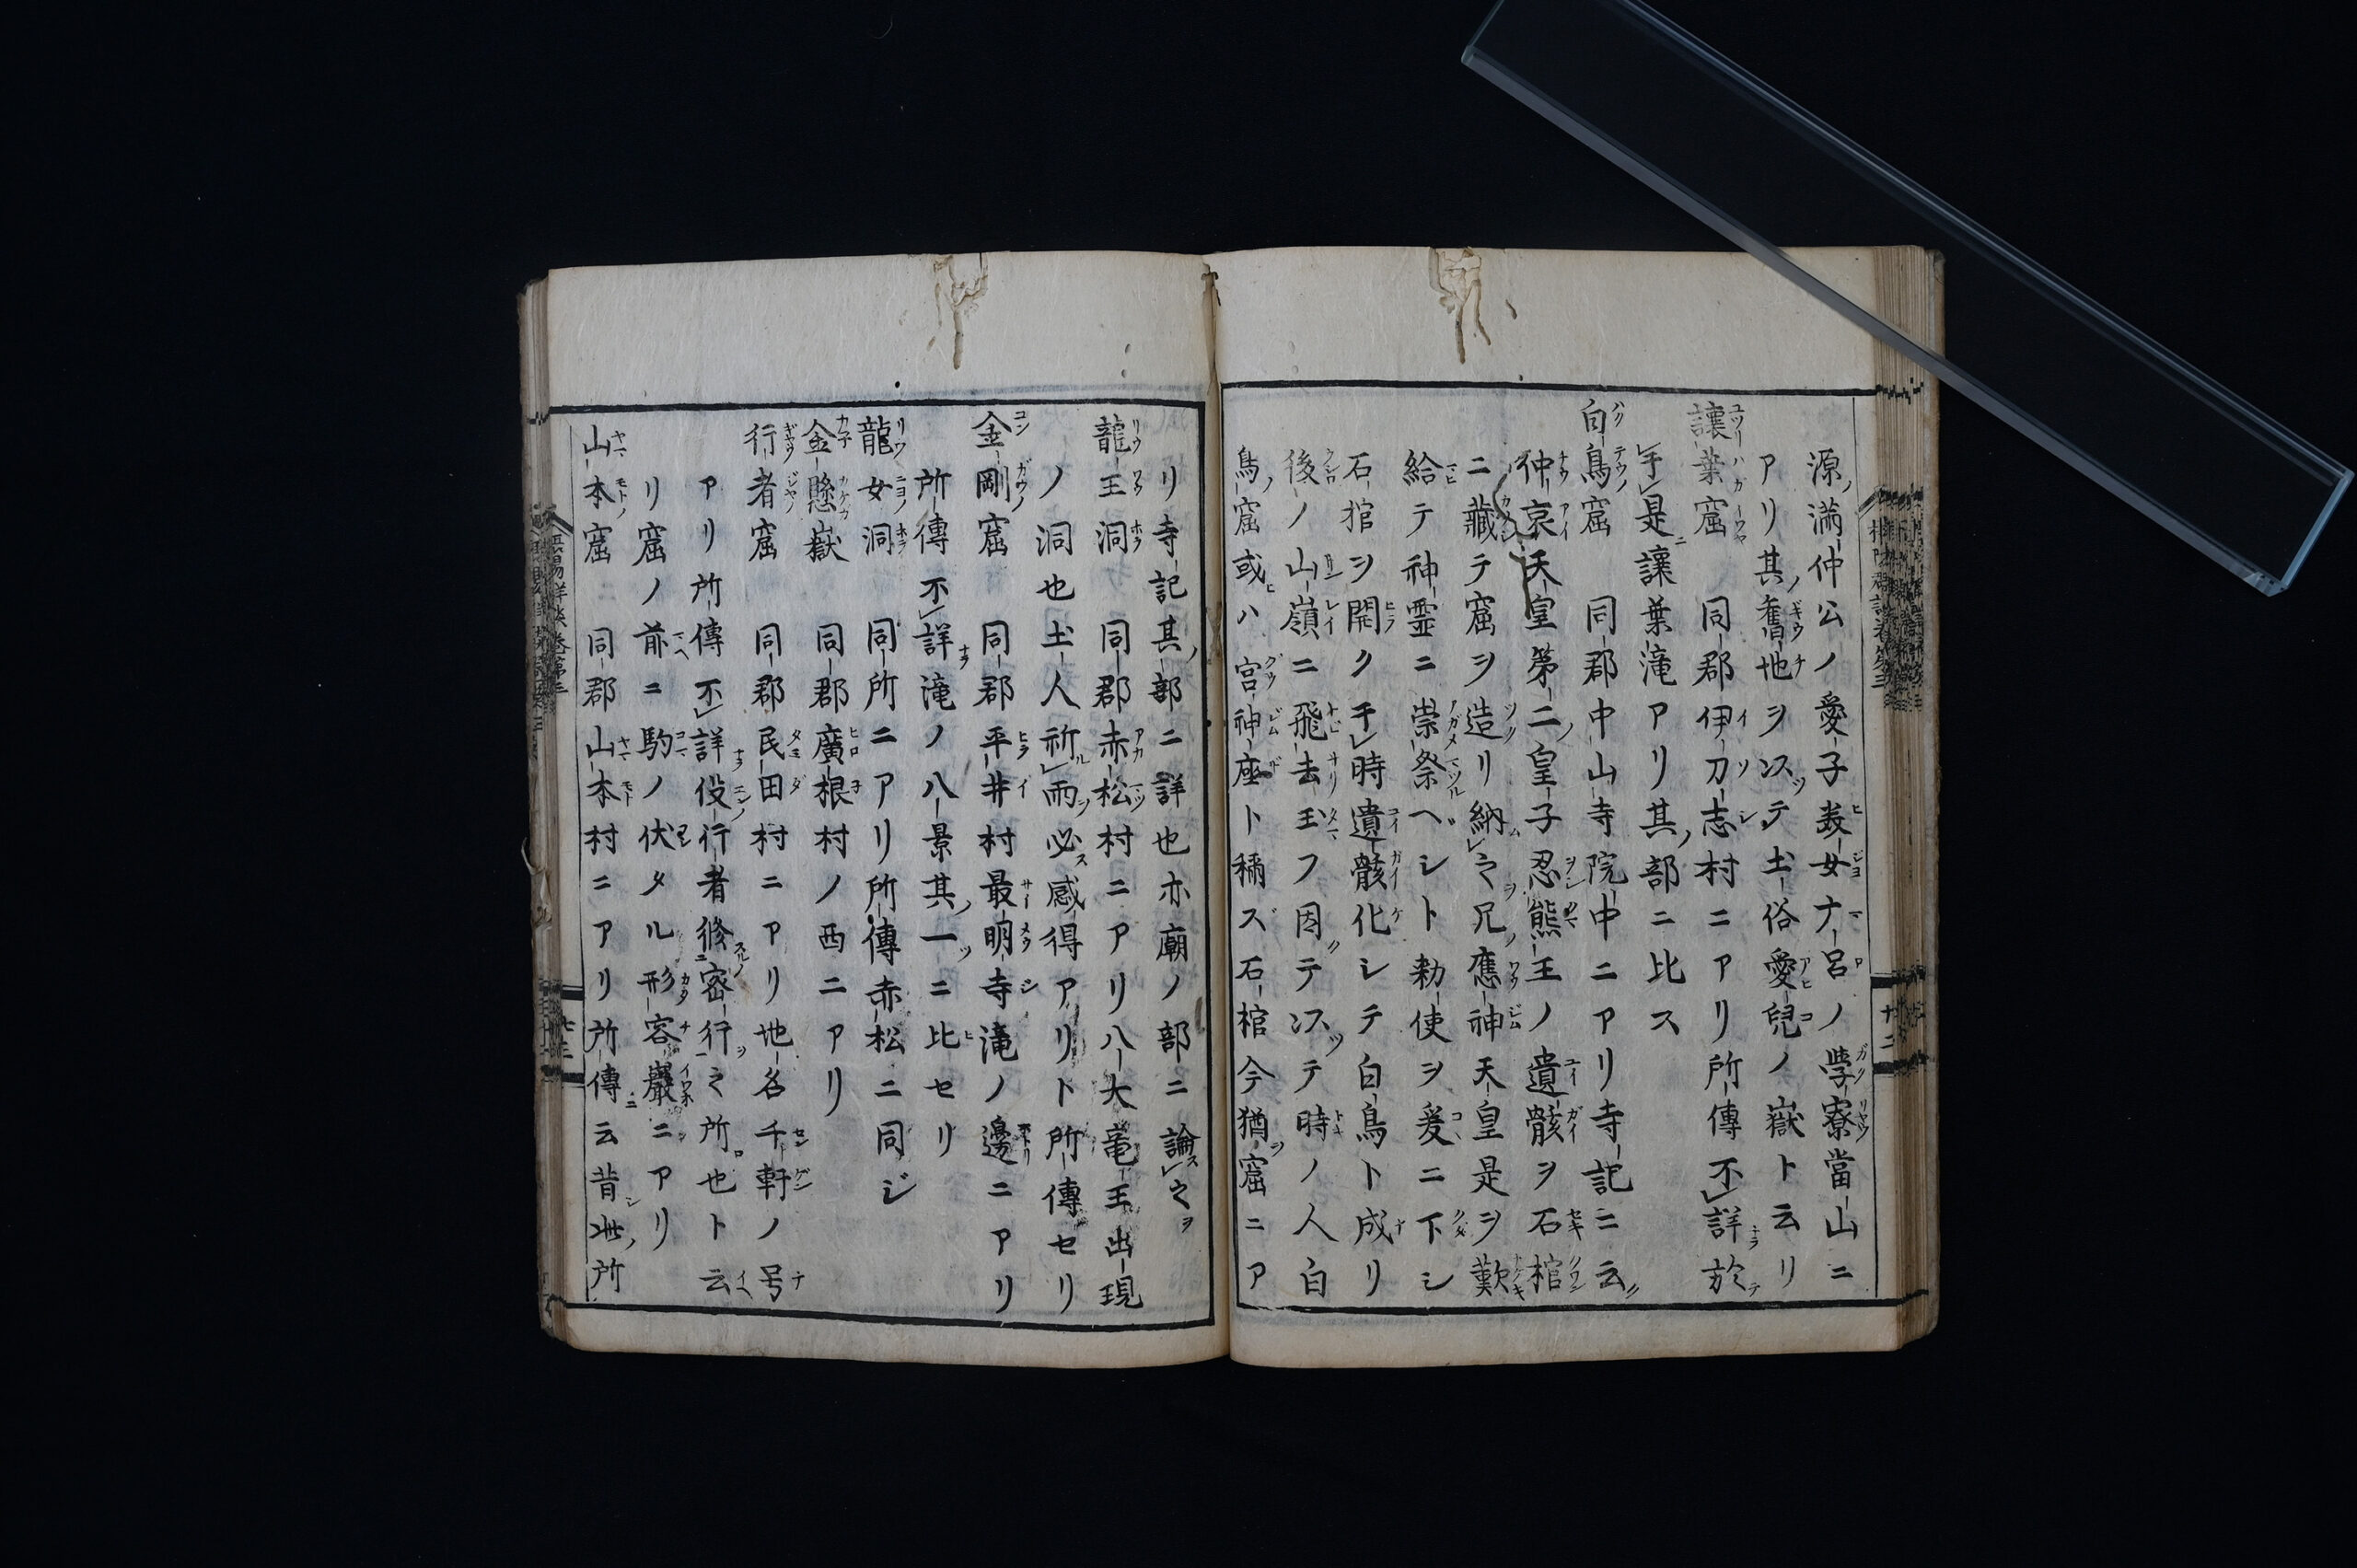 源満仲公ノ愛子美女ナ呂ノ學寮當山ニ
アリ其舊地ヲ以テ土俗愛兒ノ嶽ト云リ
讓葉窟 同郡伊刀志村ニアリ所傳不詳於
乎是讓葉滝アリ其部ニ比ス
白鳥窟 同郡中山寺院中ニアリ寺記ニ云
仲哀天皇第二皇子忍熊王ノ遺骸ヲ石棺
ニ藏テ窟ヲ造リ納之兄應神天皇是ヲ歎
給テ神霊ニ崇祭ヘシト勅使ヲ爰ニ下シ
石棺ヲ開ク于時遺骸化シテ白鳥ト成リ
後ノ山嶺ニ飛去玉フ因テ以テ時ノ人白
鳥窟或ハ宮神座ト稱ス石棺今猶窟ニア
リ寺記其部ニ詳也亦廟ノ部ニ論之
龍王洞 同郡赤松村ニアリ八大竜王出現
ノ洞也土人祈雨必感得アリト所傳セリ
金剛窟 同郡平井村最明寺滝ノ邊ニアリ
所傳不詳滝ノ八景其一ニ比セリ
龍女洞 同所ニアリ所傳赤松ニ同ジ
金懸嶽 同郡廣根村ノ西ニアリ
行者窟 同郡民田村ニアリ地名千軒ノ号
アリ所傳不詳役行者修密行之所也ト云
リ窟ノ前ニ駒ノ伏タル形容巖ニアリ
山本窟 同郡山本村ニアリ所傳云昔此所